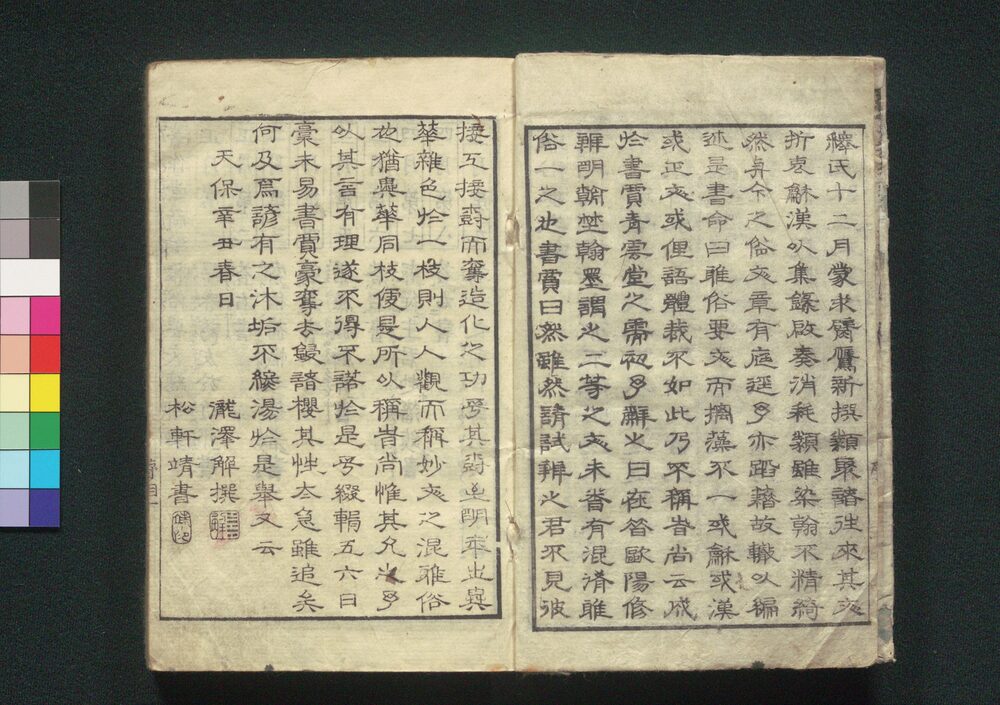 釋氏十二月蒙求膺鷹新撰類聚諸往來其文
折衷龢漢以集錄啟奏消耗類雖染翰不精綺
然與今之俗文章有庭逕予亦蹈藉故轍以編
述是書命曰雅俗要文而摛藻不一或龢或漢
或正文或俚語體裁不如此乃不稱旹尚云成
於書賈青雲堂之需初予辭之曰在昝歐陽修
辨明翰埜翰墨謂之二等之文未嘗有混淆雅
俗一之也書賈曰然雖然請試辨之君不見彼
接工接樹而奪造化之功乎其樹也朙華也異
華雜色於一枝則人人觀而稱妙文之混雅俗
也猶異華同枝便是所以稱旹尚惟其允也予
以其言有理遂不得不諾於是乎綴輯五六日
稾未易書賈豪奪去鋟諸櫻其性太急雖追矣
何及爲諺有之沐垢不緩湯於是舉又云
天保辛丑春日
瀧澤解撰
松軒靖書